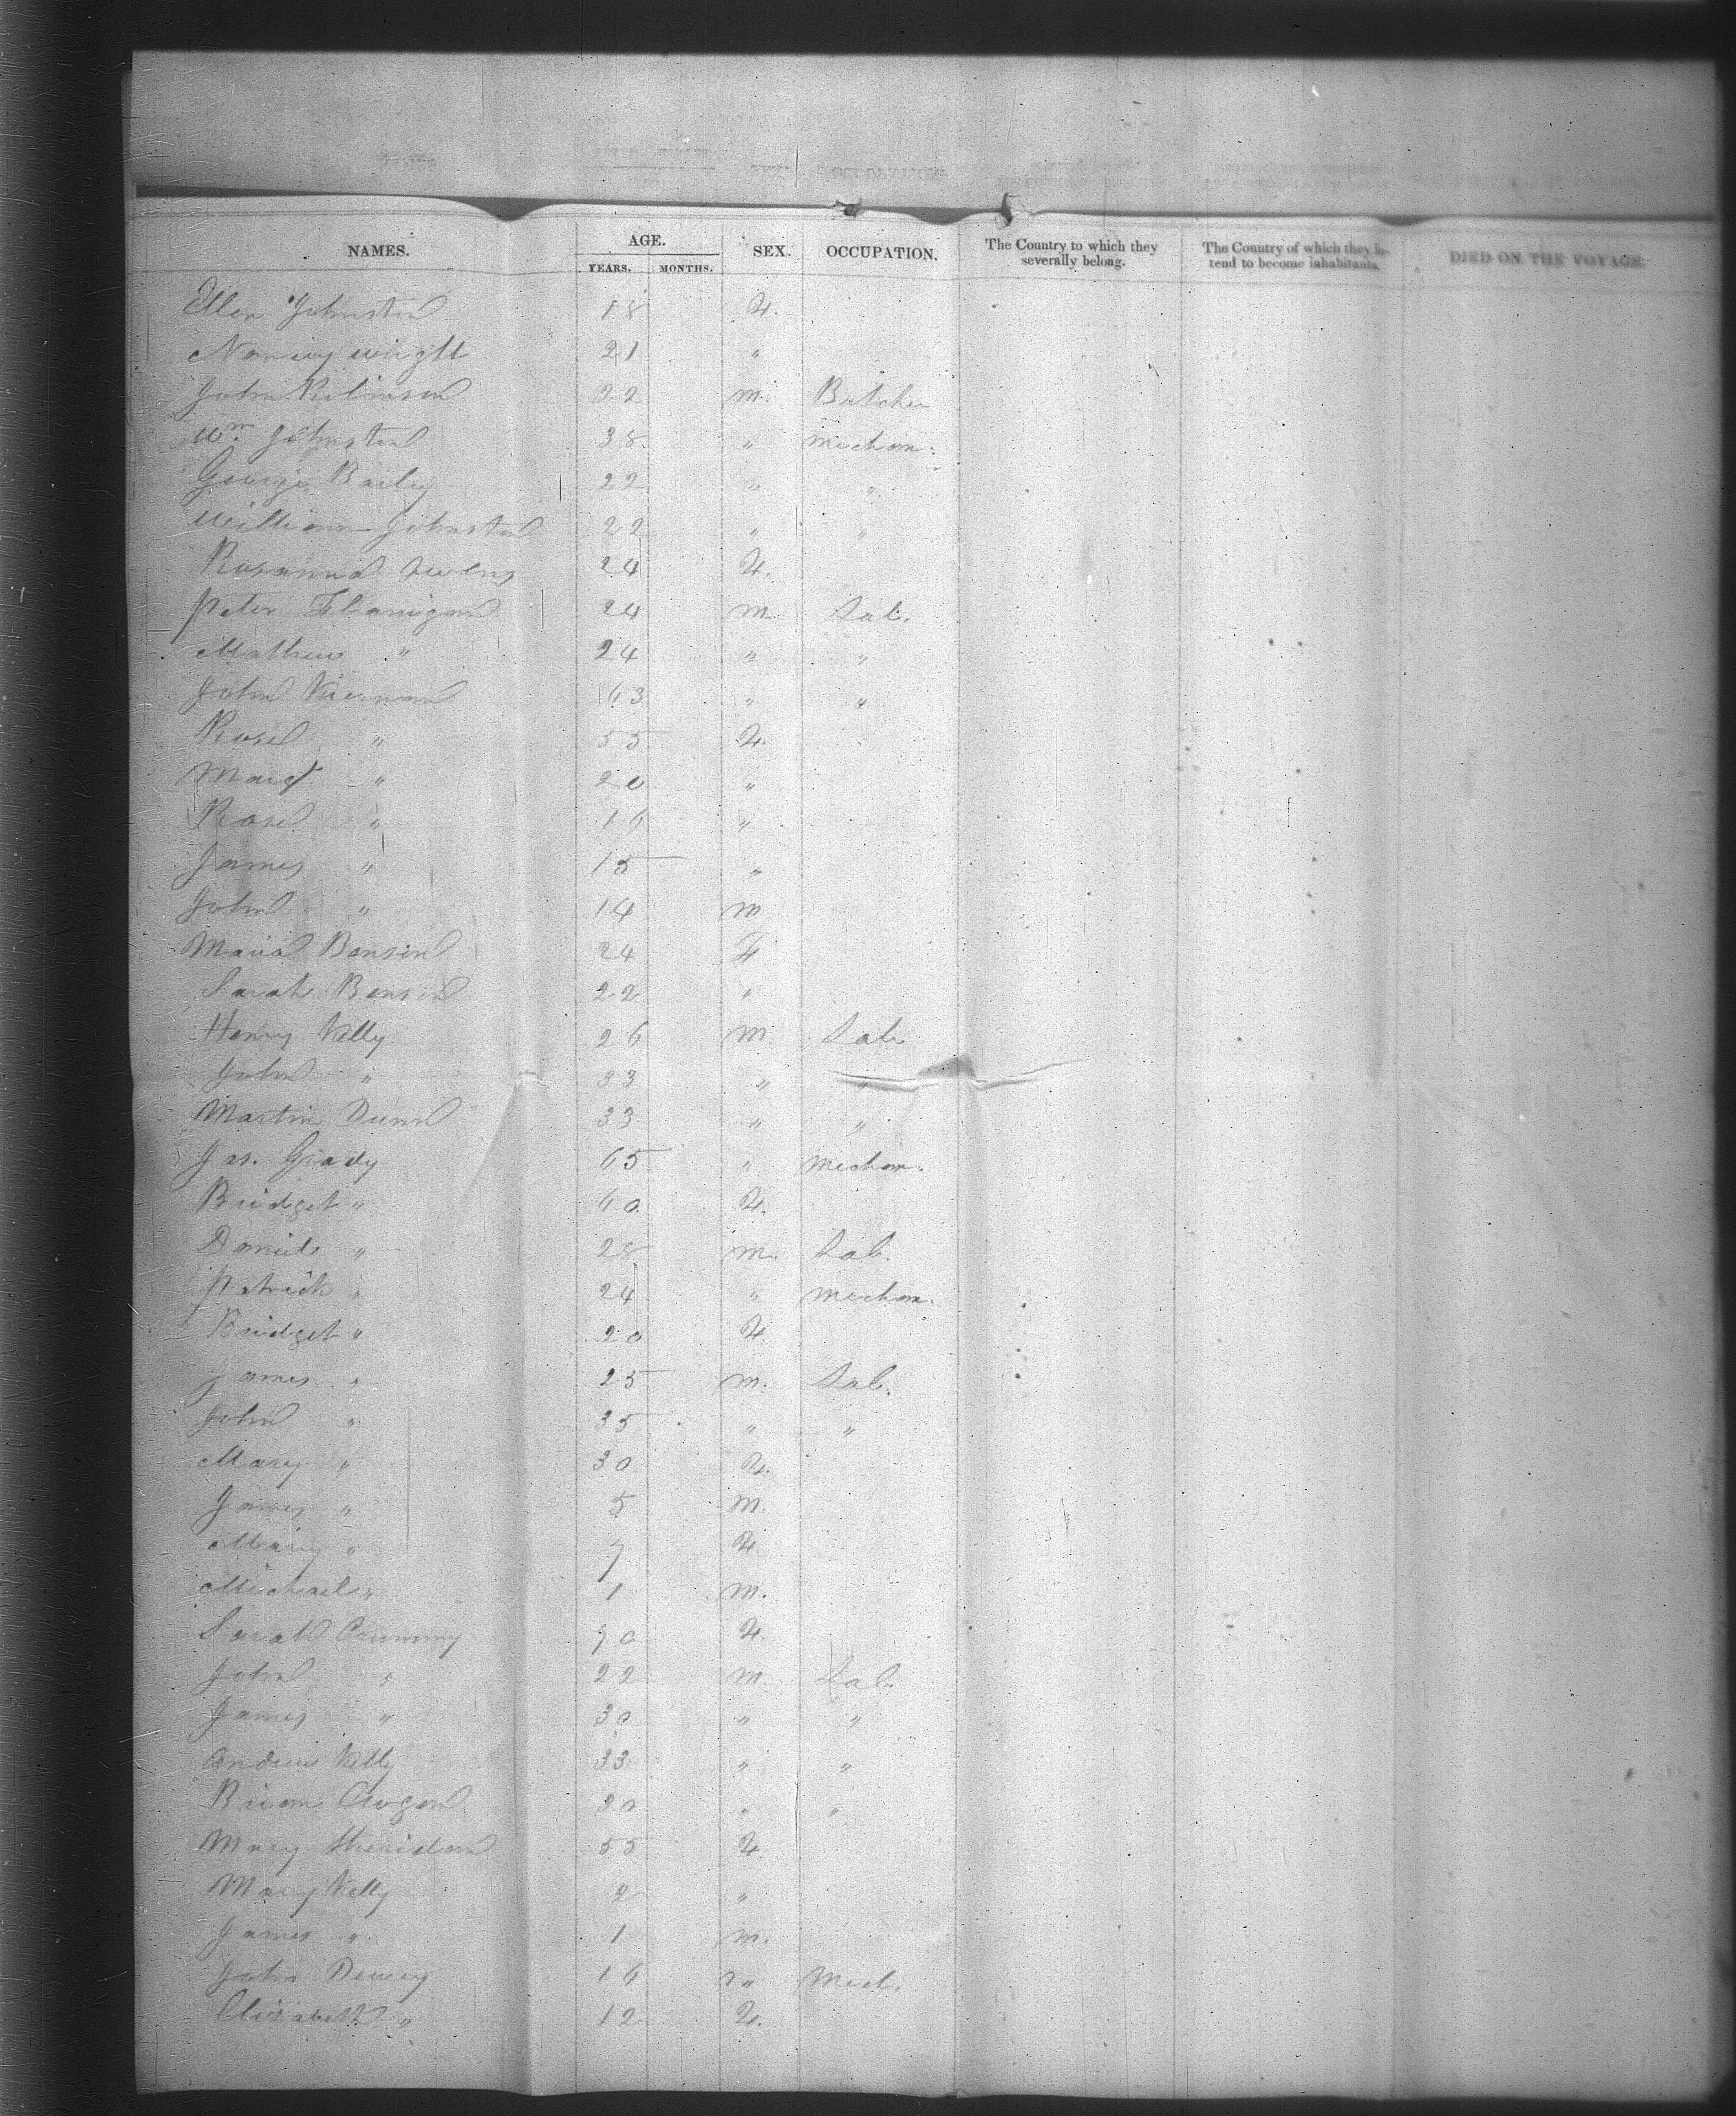 NAMES. AGE. SEX. OCCUPATION. The Country to which they severally belong. The Country of which they intend to become inhabitants. DIED ON THE VOYAGE.
YEARS. MONTHS.
Ellen Johnston 18 F.
Nancy Wright 21 "
John Robinson 22 m. Butcher
Wm. Johnston 38 " mechan.
George Baily 22 " "
William Johnston 22 " "
Rosanna Owens 24 F.
Peter Flanigan 24 m. Lab.
Mathew " 24 " "
John Kiernan 63 " "
Rose " 55 F.
Margt " 20 "
Rose " 16 "
James " 15 "
John " 14 m
Maria Benson 24 F
Sarah Benson 22 "
Henry Kelly 26 m Lab.
John " 33 " "
Martin Dunn 33 " "
Jas. Grady 65 " mechan.
Bridget " 60 F.
Daniel " 28 m. Lab.
Patrick " 24 " mechan.
Bridget " 20 F.
James " 25 m. Lab.
John " 35 " "
Mary " 30 F.
James " 5 m.
Mary " 7 F.
Michael " 1 m.
Sarah 70 F.
John " 22 m Lab.
James " 30 " "
Andrew Kelly 33 " "
Brian 20 " "
Mary Sheridan 55 F.
Mary Kelly 2 "
James " 1 m.
John 16 " Mech.
Elizabeth " 12 F.